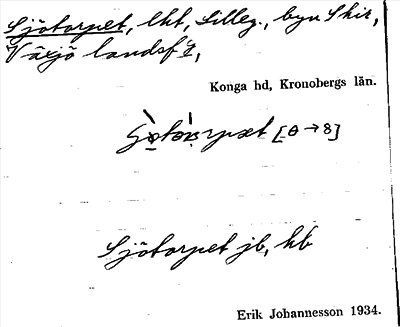 Sjötorpet, lht, Lilleg., byn Skir,
Växjö landsf.,
Konga hd, Kronobergs län.
[θ → 8]
Sjötorpet jb, hb
Erik Johannesson 1934.